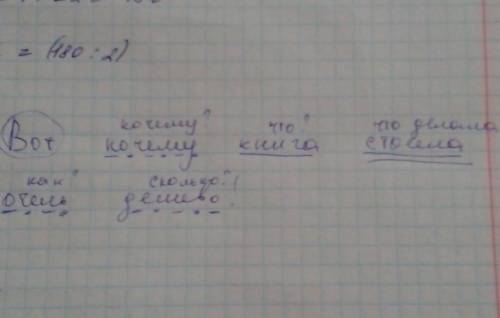 = (480 : 2)
почему? что? что делала
Вот почему книга стоила
как? сколько?
очень дешево.